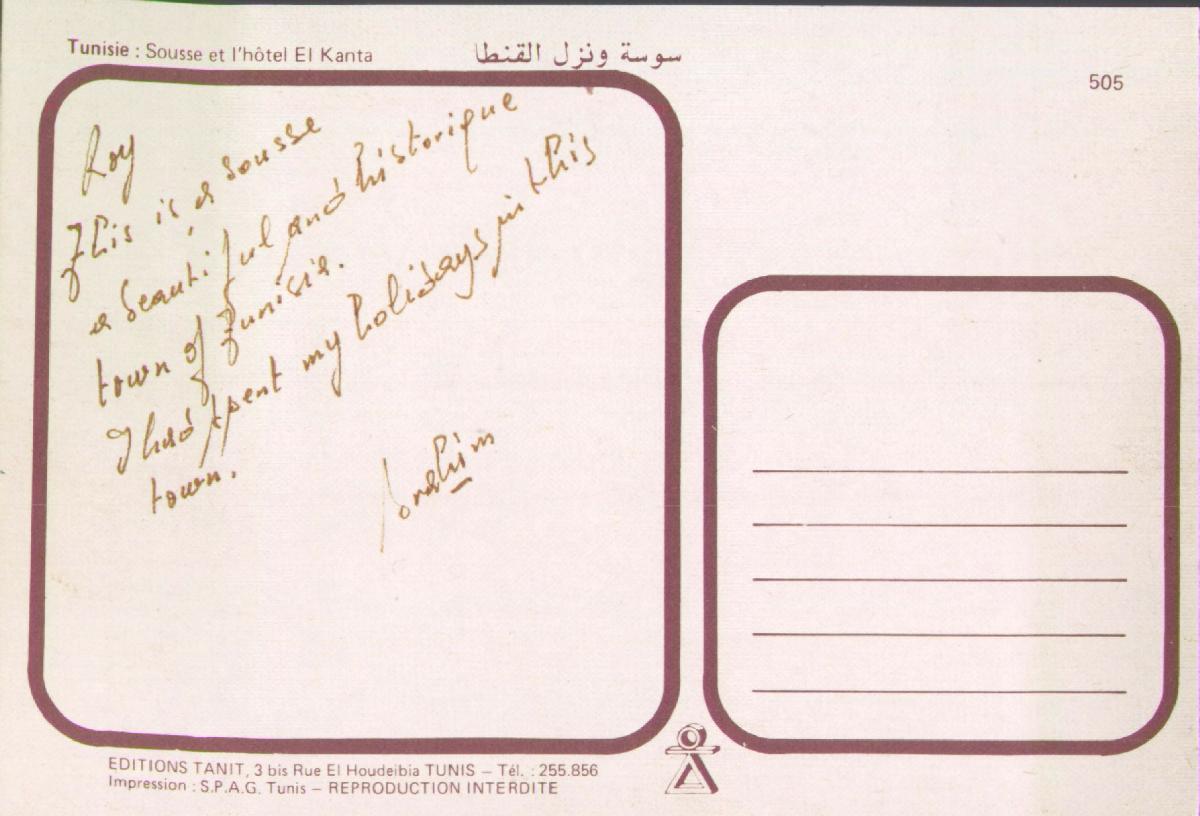 Tunisie : Sousse et l'hôtel El Kanta
سوسة ونزل القنطا
505
Roy
This is a sousse
a beautiful and historique
town of Tunisia.
I had spent my holidays in this
town.
Brahim
EDITIONS TANIT, 3 bis Rue El Houdeibia TUNIS – Tél. : 255.856
Impression : S.P.A.G. Tunis – REPRODUCTION INTERDITE